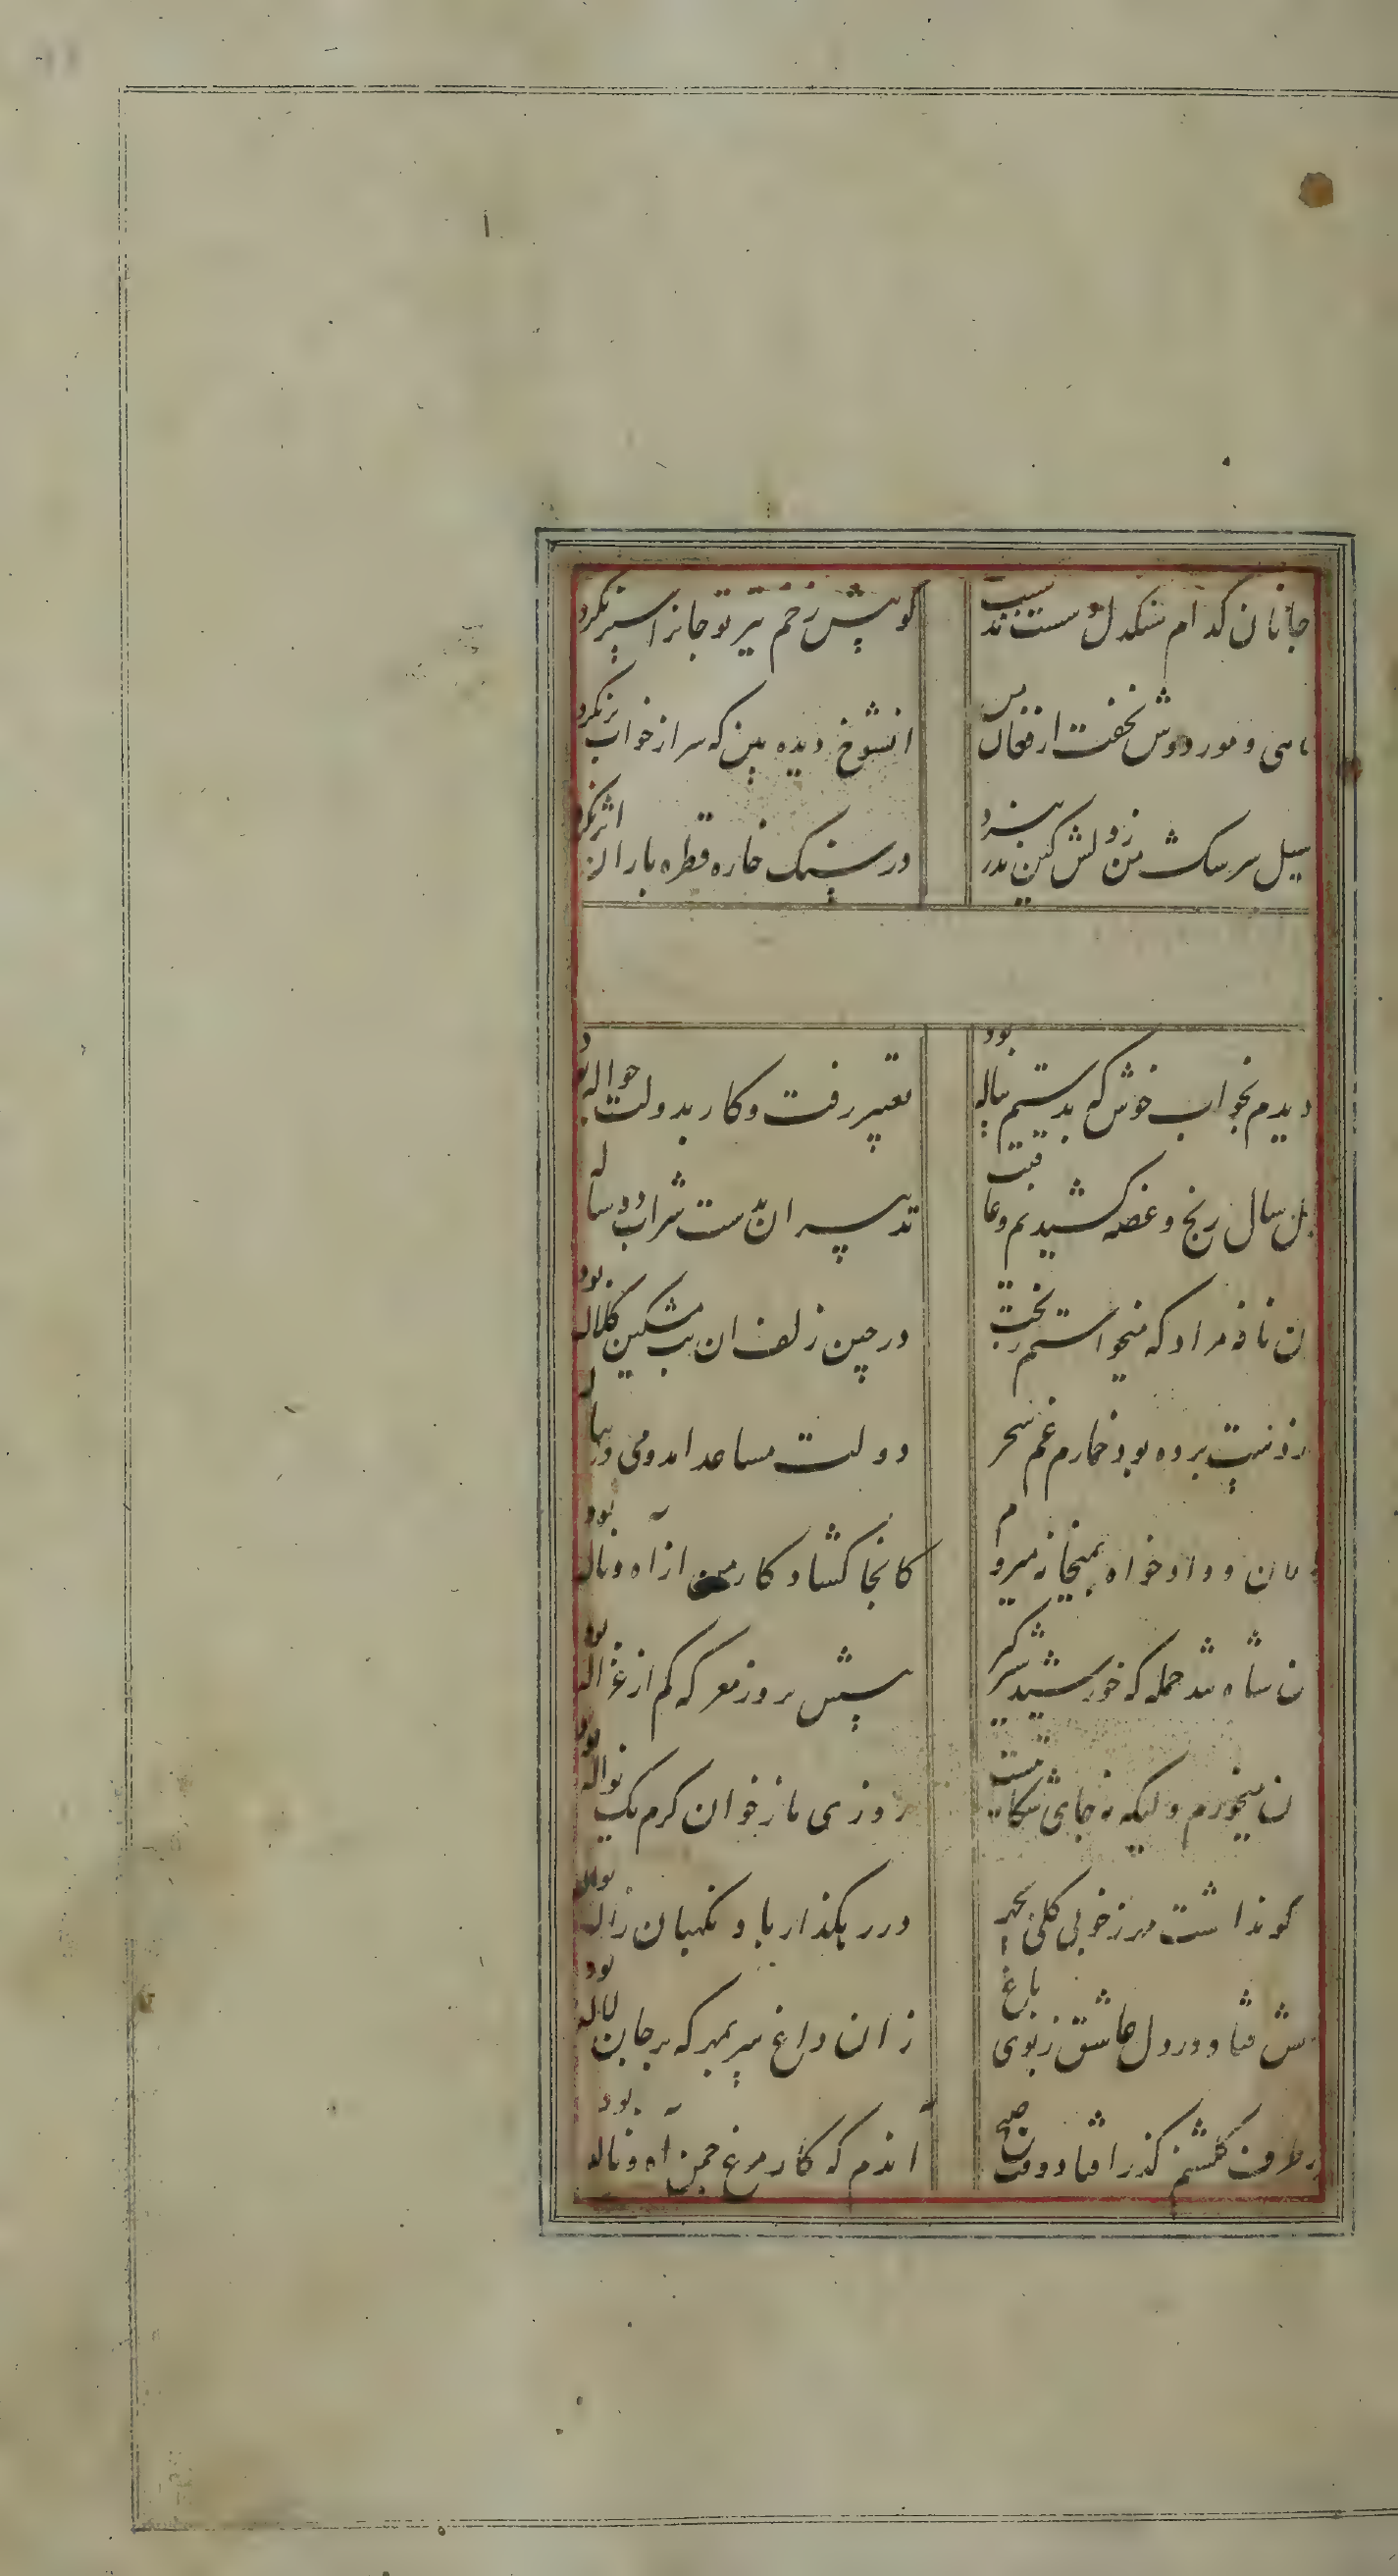 جانان کدام سنگدل سست بند نیست
کو پیش زخم تیر تو جانرا سپر نکرد
ماهی و مور دوش نخفت از فغان من
انشوخ دیده بین که سر از خواب بر نکرد
سیل سرشک من ز دلش کین بدر نبرد
در سنگ خاره قطره باران اثر نکرد
دیدم بخواب خوش که بدستم پیاله بود
تعبیر رفت و کار بدولت حواله بود
سال رنج و غصه کشیدیم و عاقبت
تدبیر ان بدست شراب دو ساله
ن نافه مراد که میخواستم ز بخت
در چین زلف ان بت مشکین کلاله بود
از دست برده بود خمارم غم سحر
دولت مساعد امد و می در پیاله
ن و دادخواه بمیخانه میروم
کانجا کشاد کار من از آه و ناله بود
ن شاه تند حمله که خورشید شیر گیر
پیشش بروز معرکه کم از غزاله بود
ن میخورم ولیکه نه جای شکایتست
روزی ما ز خوان کرم یک نواله بود
کو نداشت مهر ز خوبی گلی بچید
در رهگذار باد نگهبان ژاله بود
تش فتاد در دل عاشق ز بوی باغ
زان داغ سر بمهر که بر جان لاله بود
بر طرف گلشنم گذر افتاد وقت صبح
آندم که کار مرغ چمن آه و ناله بود